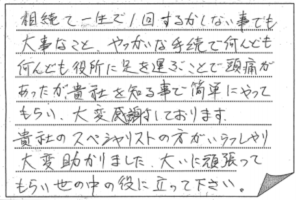 相続で一生で1回するかしない事でも
大事なこと、やっかいな手続で何んども
何んども役所に足を運ぶことで頭痛が
あったが貴社を知る事で簡単にやって
もらい、大変感謝しております。
貴社のスペシャリストの方がいらっしゃり
大変助かりました、大いに頑張って
もらい世の中の役に立って下さい。